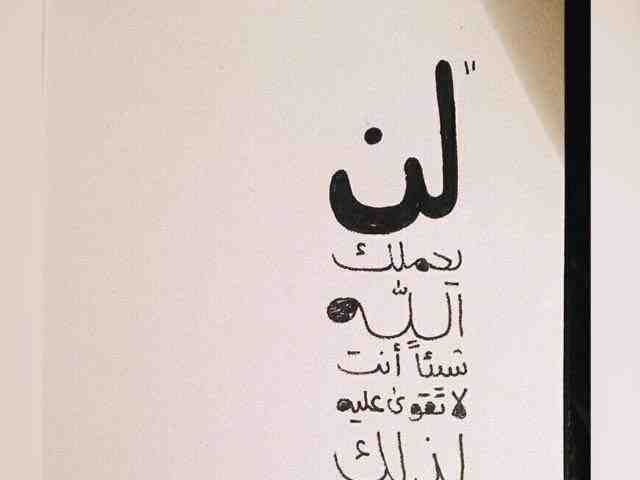 "لن
يحملك
الله
شيئاً أنت
لا تقوى عليه
لذلك